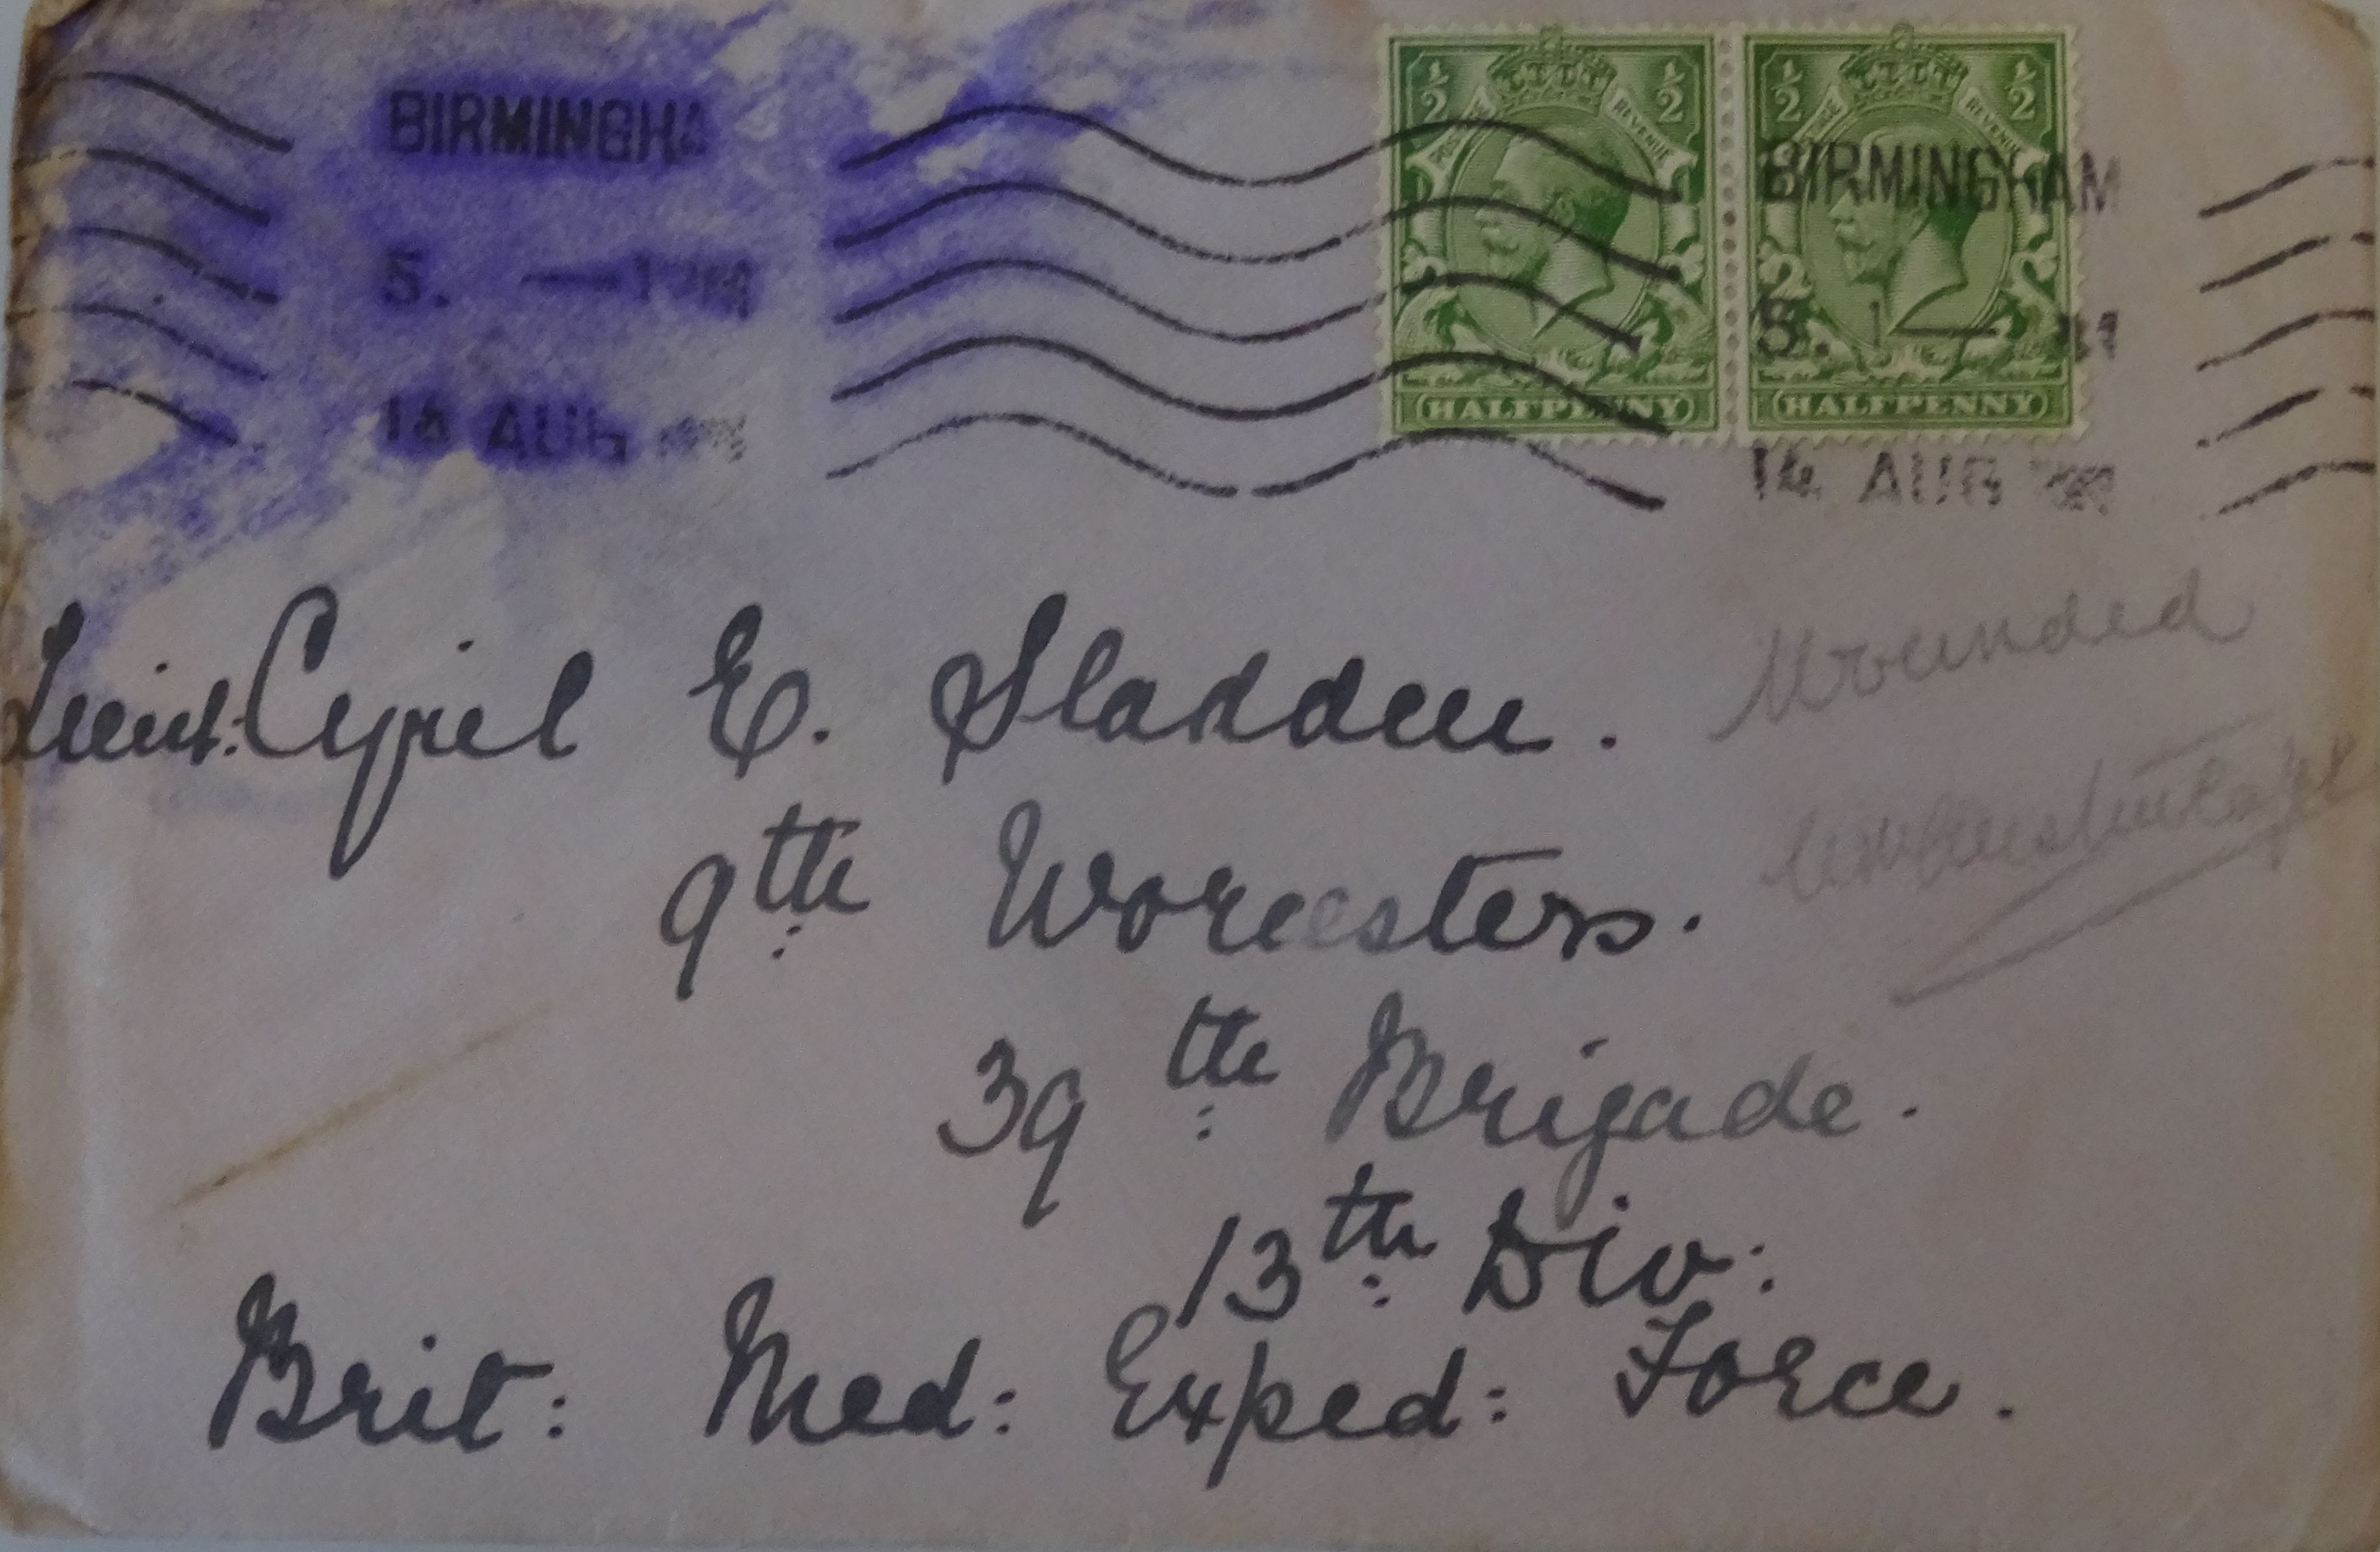 BIRMINGHA
5. — 1
14 AUG
½ ½ ½ ½
POSTAGE REVENUE POSTAGE REVENUE
HALFPENNY HALFPENNY
BIRMINGHAM
5. 1 —
14 AUG
Lieut: Cyril E. Sladden.
9th Worcesters.
39th Brigade.
13th Div:
Brit: Med: Exped: Force.
Wounded